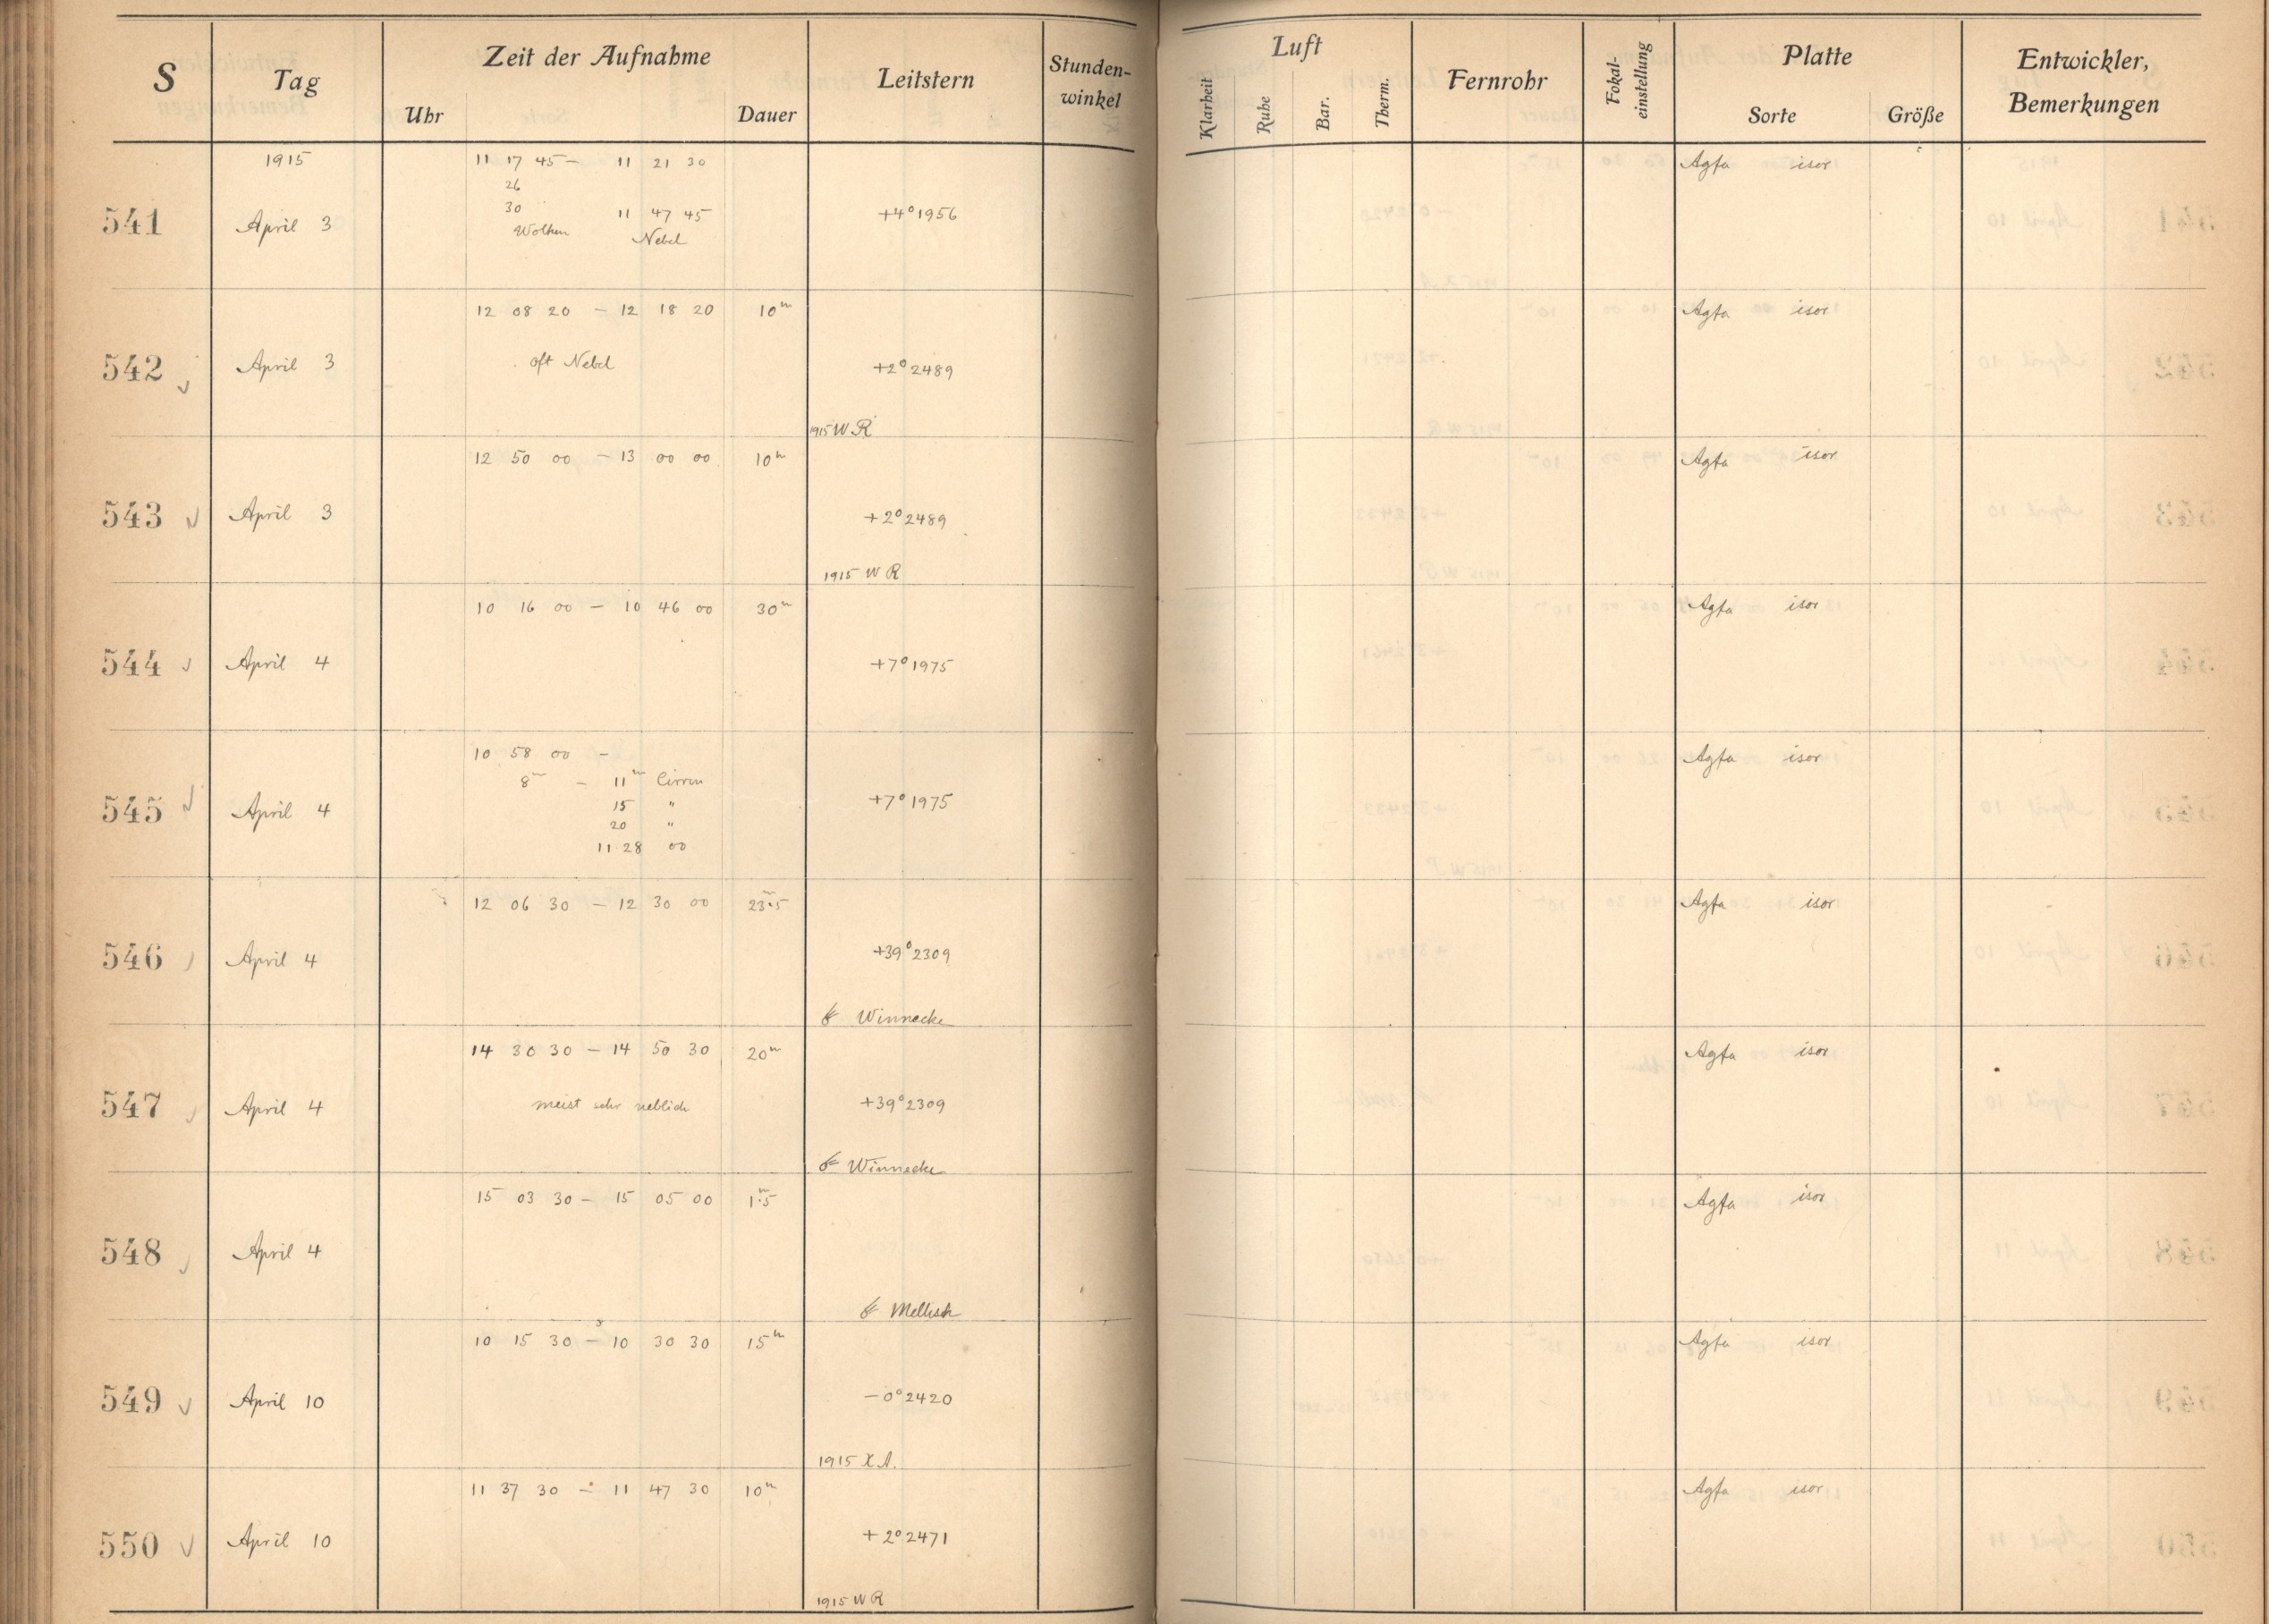 S Tag Zeit der Aufnahme Leitstern Stunden-winkel Luft Fernrohr Fokal-einstellung Platte Entwickler, Bemerkungen
Uhr Dauer Klarheit Ruhe Bar. Therm. Sorte Größe
1915 11 17 45 – 11 21 30 Agfa isor
26
30 11 47 45
541 April 3 +4° 1956
Wolken Nebel
12 08 20 – 12 18 20 10m Agfa isor
542 April 3 oft Nebel +2° 2489
1915 WR
12 50 00 – 13 00 00 10m Agfa isor
543 April 3 +2° 2489
1915 WR
10 16 00 – 10 46 00 30m Agfa isor
544 April 4 +7° 1975
10 58 00 – Agfa isor
8m – 11m Cirren
545 April 4 15 " +7° 1975
20 "
11 28 00
12 06 30 – 12 30 00 23m.5 Agfa isor
546 April 4 +39° 2309
☄ Winnecke
14 30 30 – 14 50 30 20m Agfa isor
547 April 4 meist sehr neblich +39° 2309
☄ Winnecke
15 03 30 – 15 05 00 1m.5 Agfa isor
548 April 4
☄ Mellish
10 15 30 – 10 30 30 15m Agfa isor
549 April 10 –0° 2420
1915 X A.
11 37 30 – 11 47 30 10m Agfa isor
550 April 10 +2° 2471
1915 WR